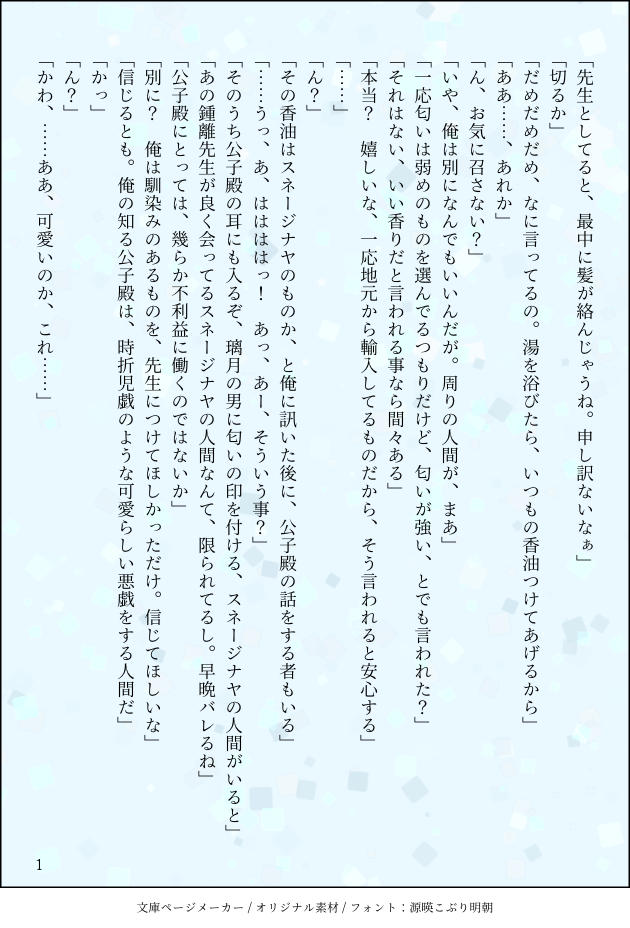 「先生としてると、最中に髪が絡んじゃうね。申し訳ないなぁ」
「切るか」
「だめだめだめ、なに言ってるの。湯を浴びたら、いつもの香油つけてあげるから」
「ああ……、あれか」
「ん、お気に召さない？」
「いや、俺は別になんでもいいんだが。周りの人間が、まあ」
「一応匂いは弱めのものを選んでるつもりだけど、匂いが強い、とでも言われた？」
「それはない、いい香りだと言われる事なら間々ある」
「本当？　嬉しいな、一応地元から輸入してるものだから、そう言われると安心する」
「……」
「ん？」
「その香油はスネージナヤのものか、と俺に訊いた後に、公子殿の話をする者もいる」
「……うっ、あ、はははは っ！　あっ、あー、そういう事？」
「そのうち公子殿の耳にも入るぞ、璃月の男に匂いの印を付ける、スネージナヤの人間がいると」
「あの鍾離先生が良く会ってるスネージナヤの人間なんて、限られてるし。早晩バレるね」
「公子殿にとっては、幾らか不利益に働くのではないか」
「別に？　俺は馴染みのあるものを、先生につけてほしかっただけ。信じてほしいな」
「信じるとも。俺の知る公子殿は、時折児戯のような可愛らしい悪戯をする人間だ」
「かっ」
「ん？」
「かわ、……ああ、可愛いのか、これ……」
1
文庫ページメーカー / オリジナル素材 / フォント：源暎こぶり明朝